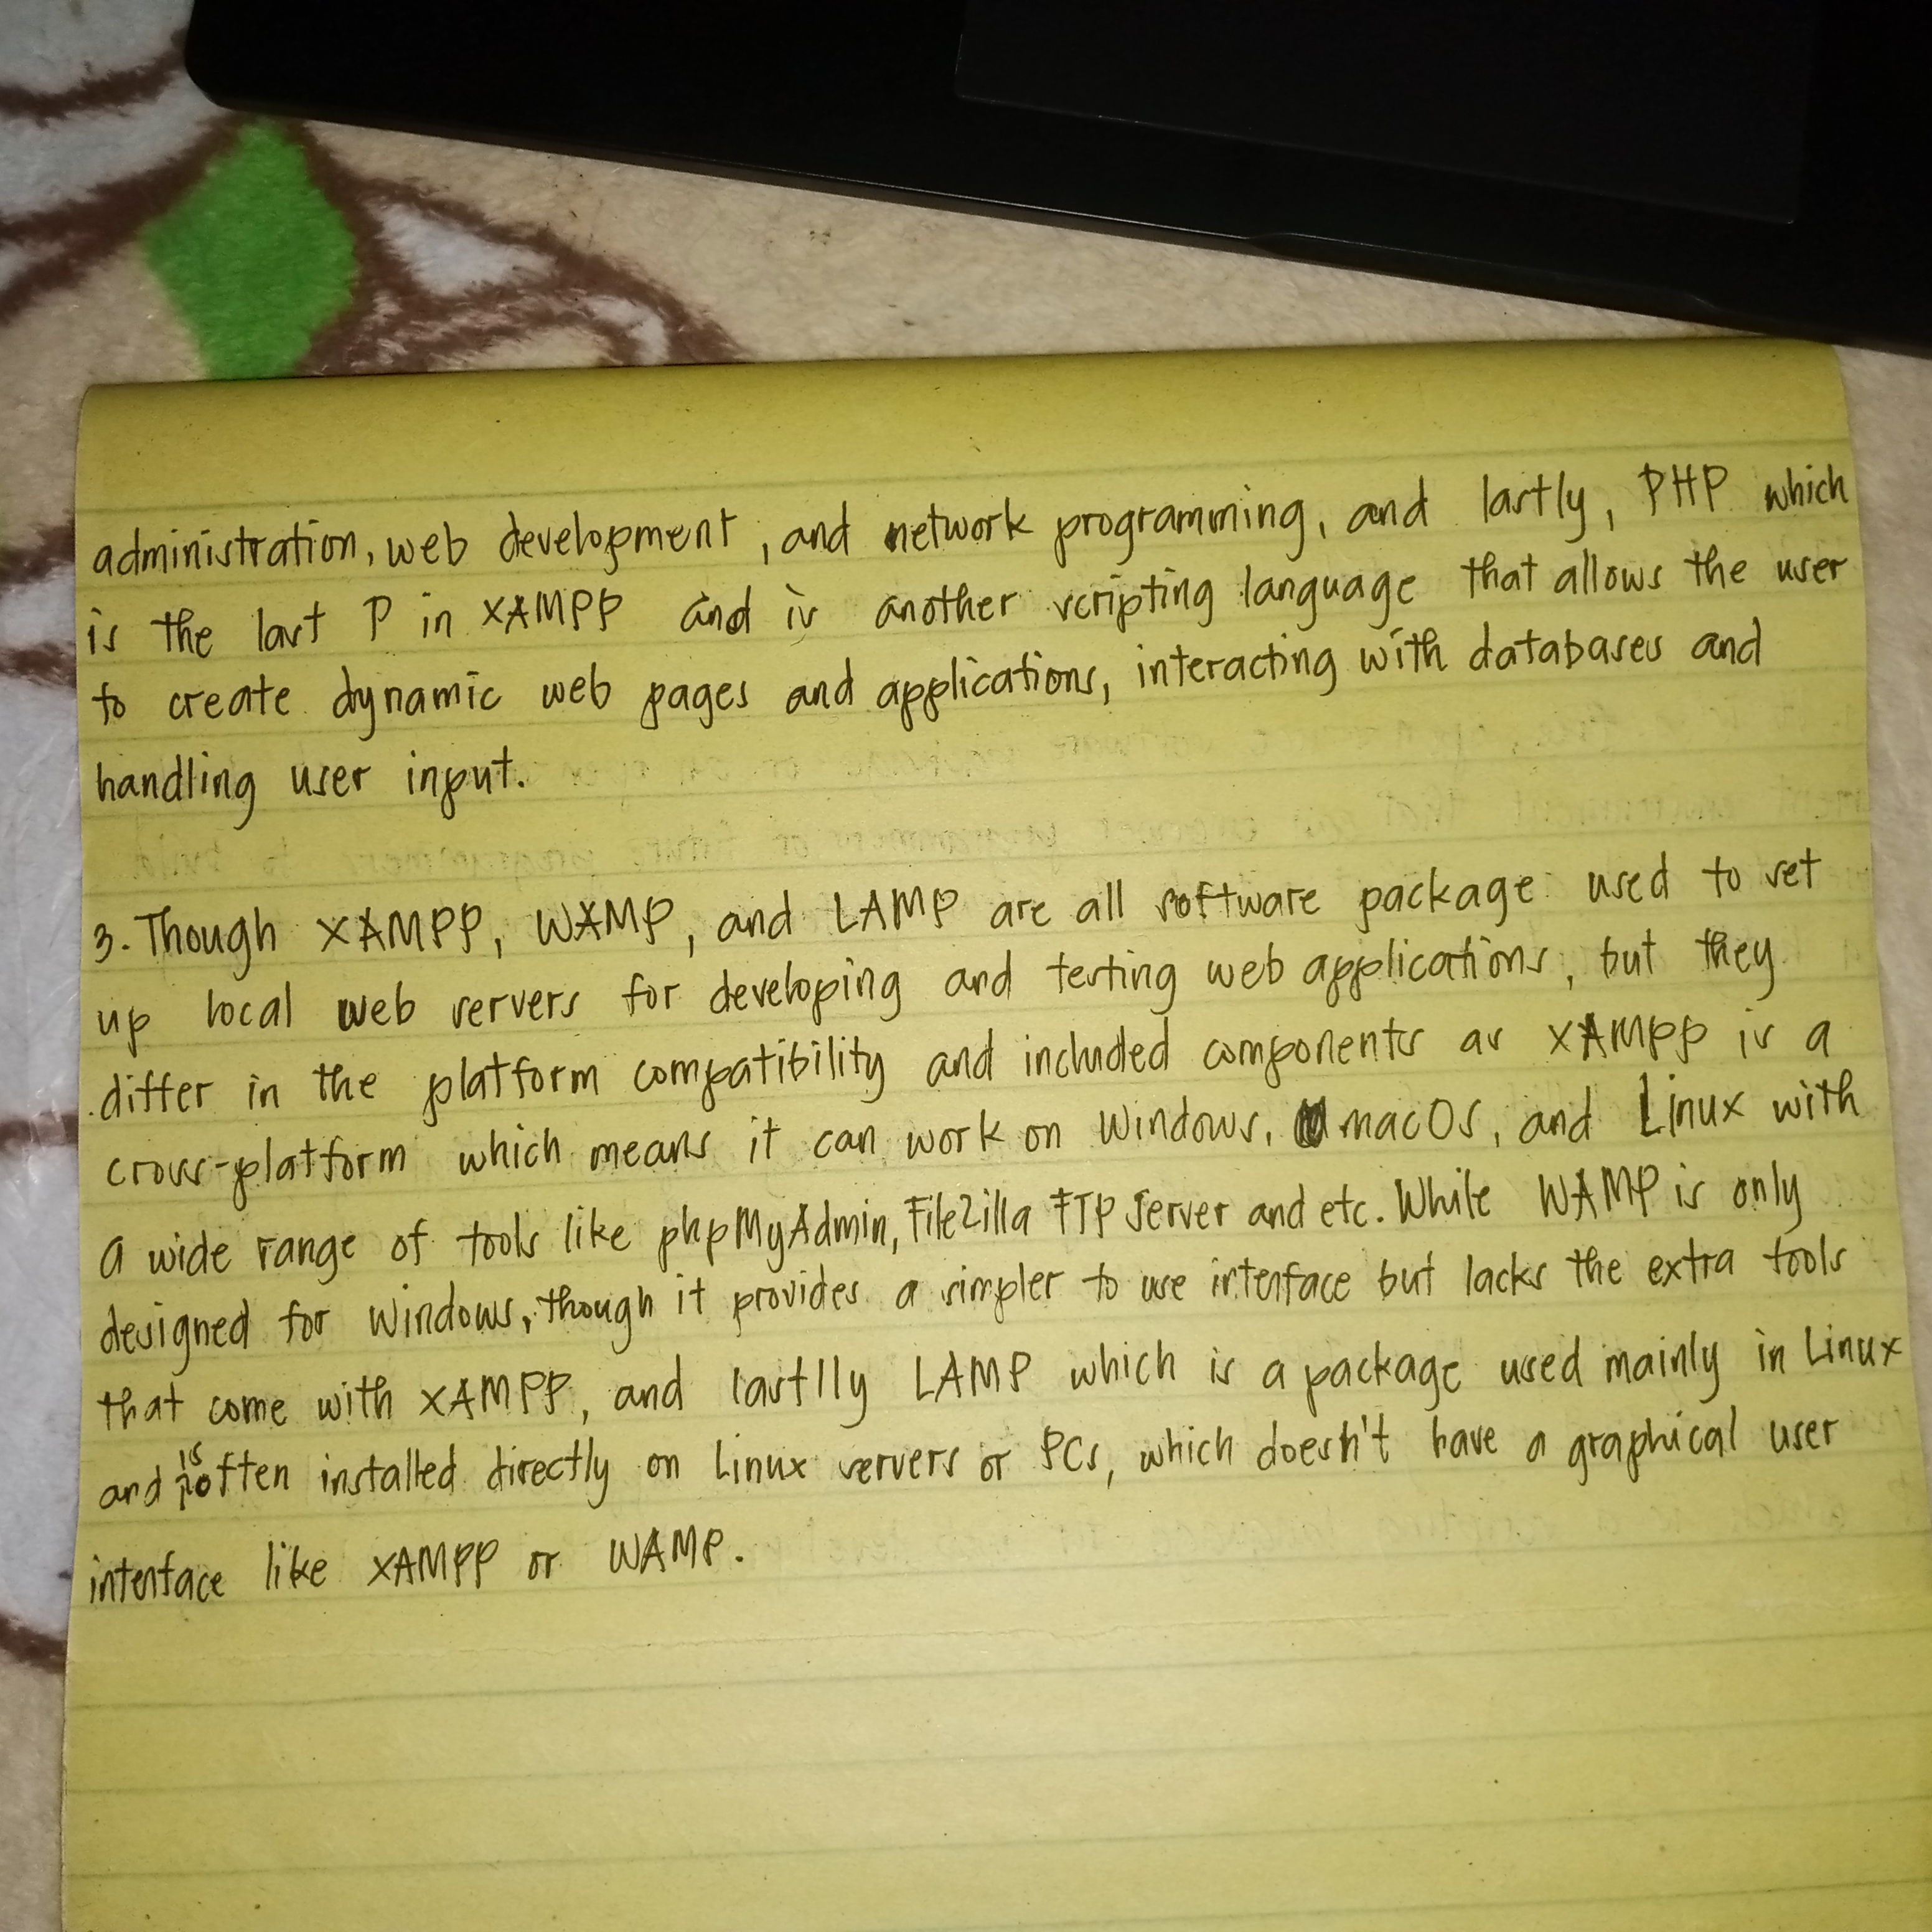 administration, web development, and network programming, and lastly, PHP which
is the last P in XAMPP and is another scripting language that allows the user
to create dynamic web pages and applications, interacting with databases and
handling user input.
3. Though XAMPP, WAMP, and LAMP are all software package used to set
up local web servers for developing and testing web applications, but they
differ in the platform compatibility and included components as XAMPP is a
cross-platform which means it can work on Windows, macOS, and Linux with
a wide range of tools like phpMyAdmin, FileZilla FTP Server and etc. While WAMP is only
designed for Windows, though it provides a simpler to use interface but lacks the extra tools
that come with XAMPP, and lastlly LAMP which is a package used mainly in Linux
and is often installed directly on Linux servers or PCs, which doesn't have a graphical user
interface like XAMPP or WAMP.